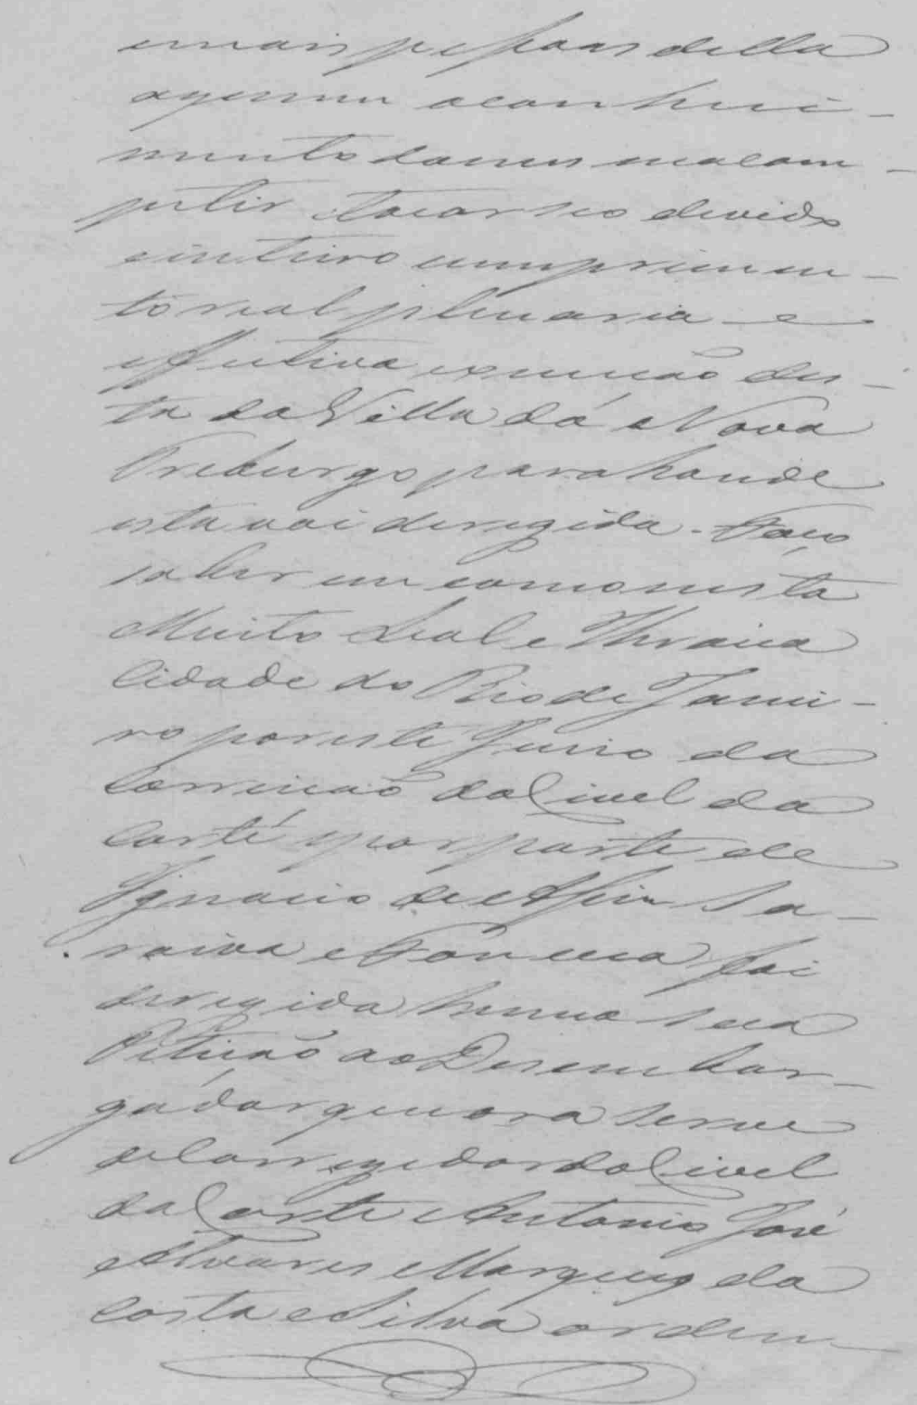 e mais pessoas della
a quem o conheci-
mento dames ma com
pitir tocar seo devido
e inteiro cumprimen-
to real plenaria e
effectiva execução des-
ta da Villa dá Nova
Freburgo para honde
esta vai deregida. Faço
saber em como nesta
Muito Leal e Heroica
Cidade do Rio de Janei-
ro por este Juizo da
Correição do Civel da
Corte e por parte de
Ignacio de Assiz Sa-
raiva e Fonceca foi
deregida huma sua
Petição ao Desembar-
gádor que ora serve
de Corregedor do Civel
da Corte Antonio José
Alvares Marques da
Costa e Silva ordem